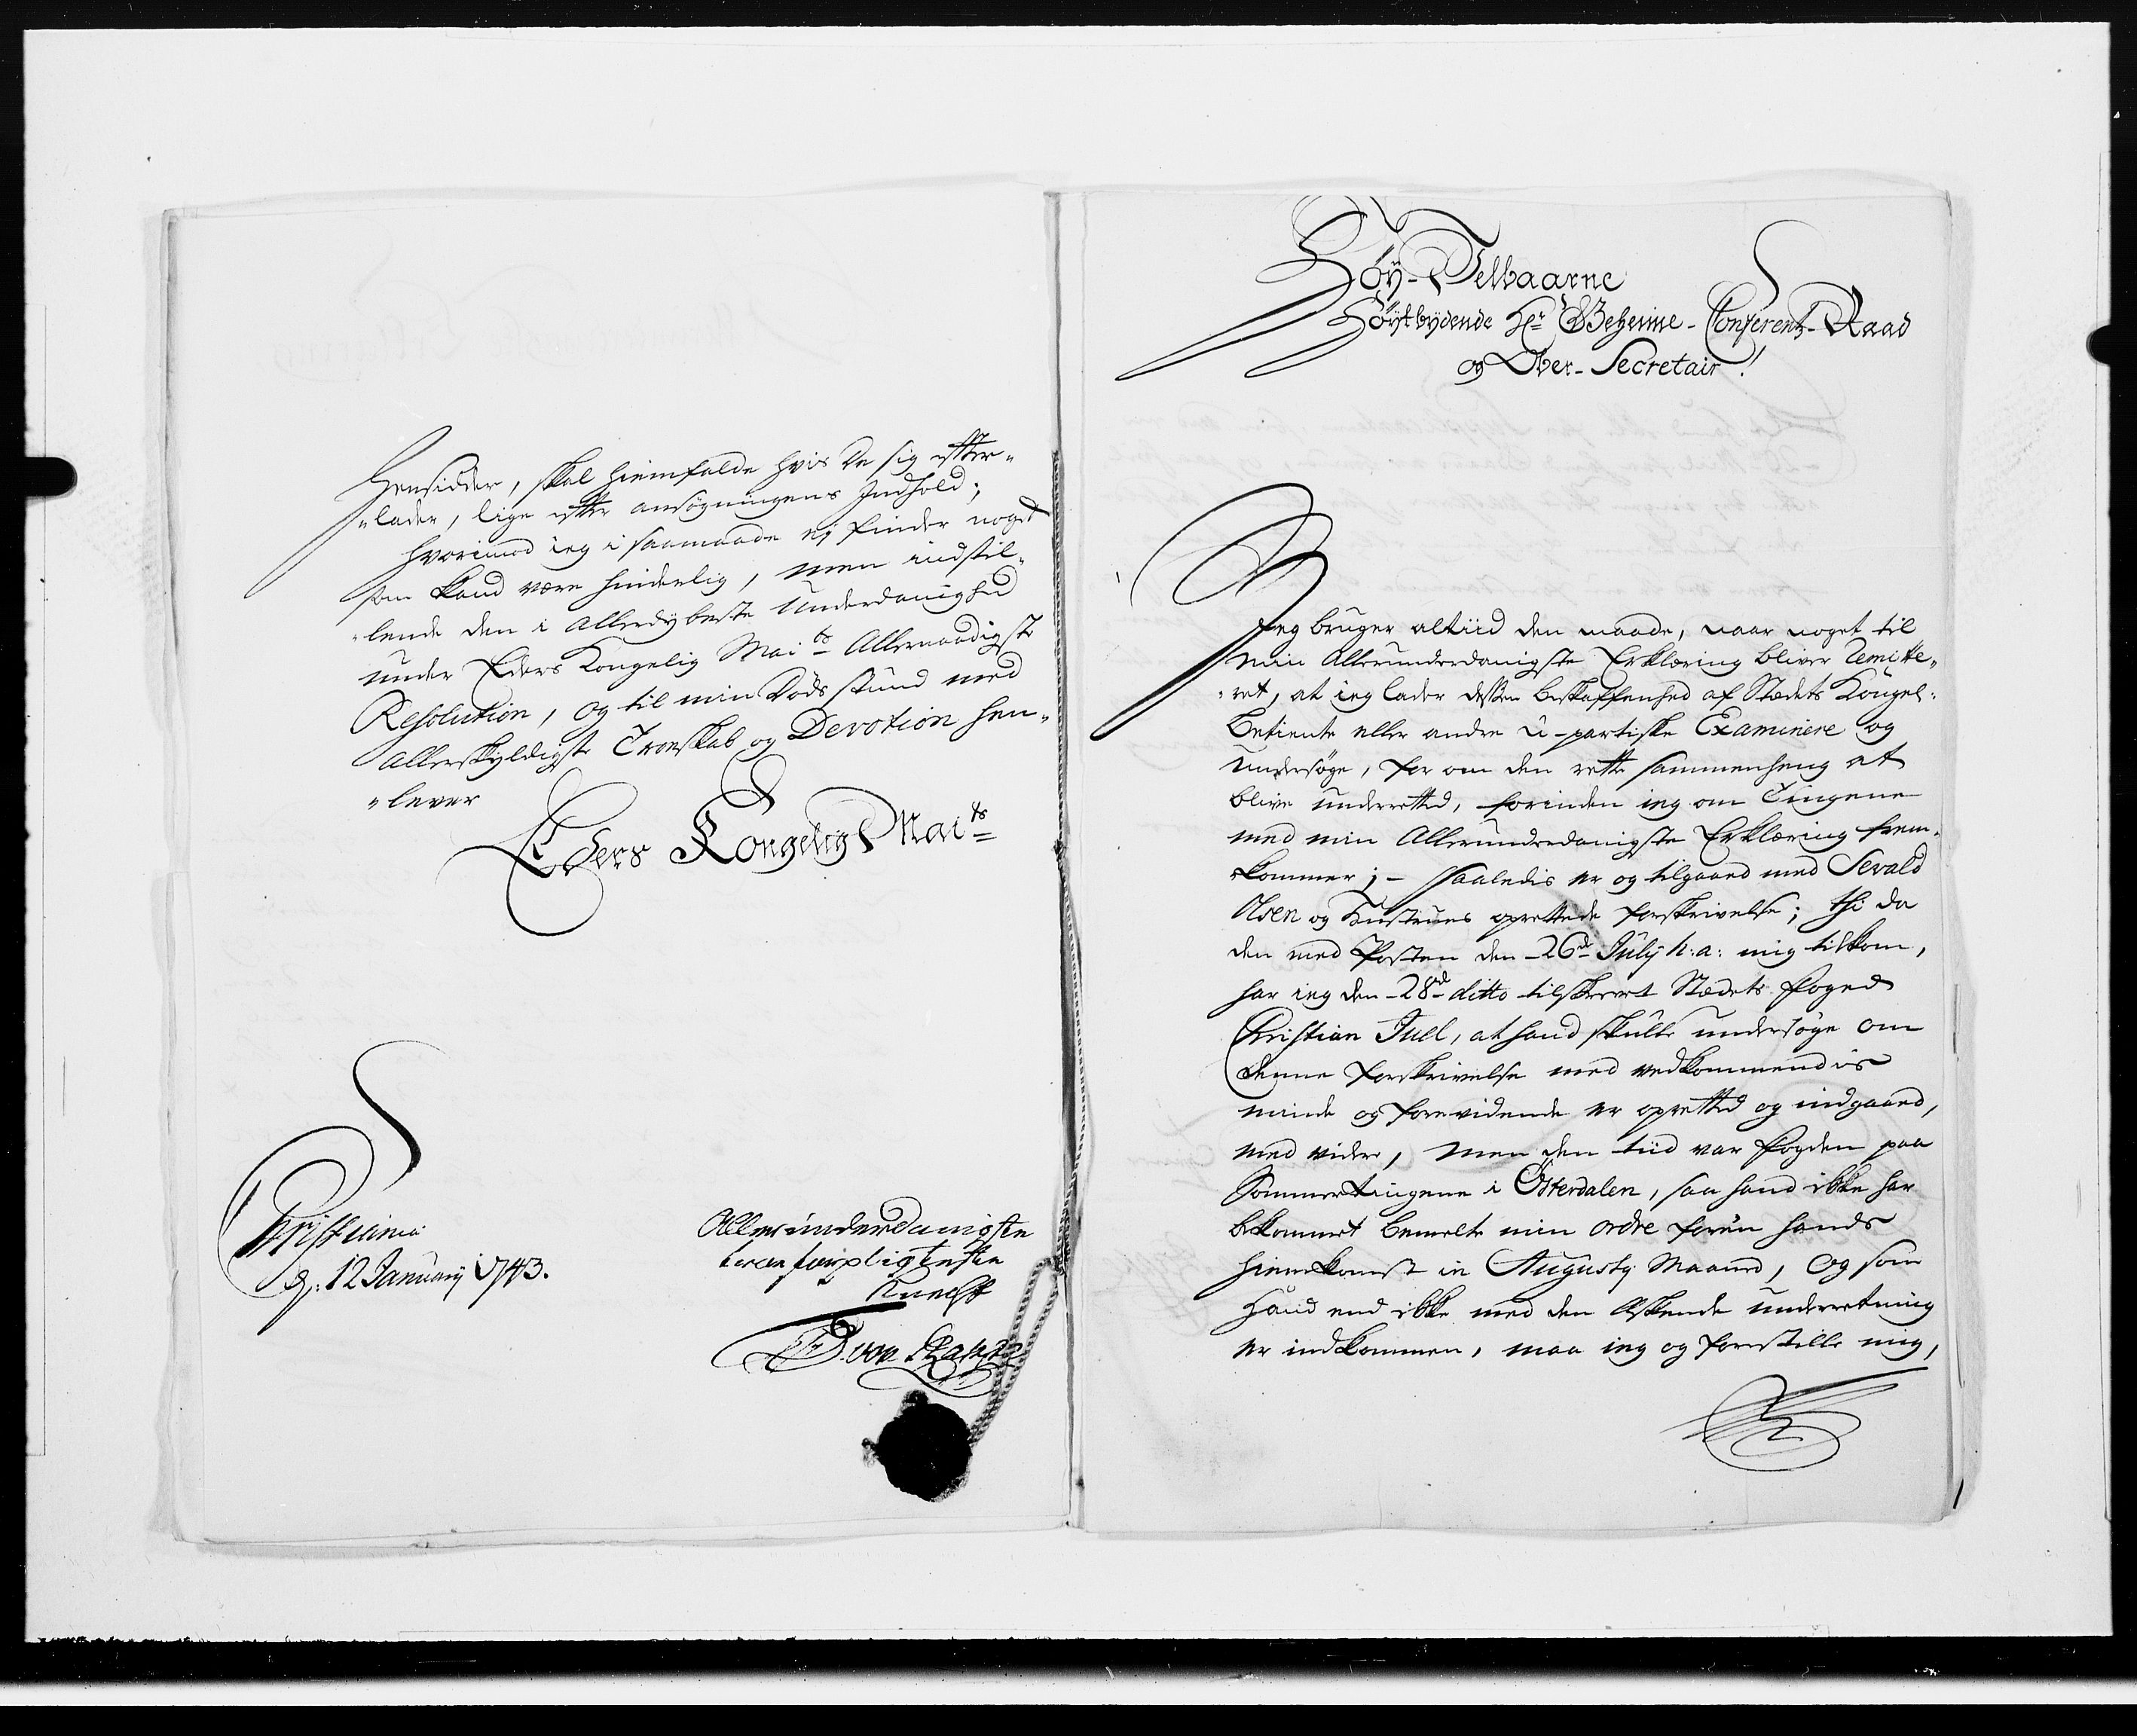 Hensidder, skal hiemfalde hvis De sig efter„
„lader, lige efter ansøgningens Indhold;
hvorimod ieg i saamaade ej finder noget
som kand være hinderlig, men indstil„
„lende den i allerdybeste Underdanighed
under Eders Kongelig Maits Allernaadigste
Resolution, og til min Døds stund med
allerskyldigste Troeskab og Devotion hen„
„lever
Eders Kongelig Maits
Christiania
d: 12 January 1743.
Allerunderdanigste
troe forpligteste
Knecht
D. von Rantzau
Høy-Velbaarne
Høystbydende Hr Geheime-Conferentz-Raad
og Ober-Secretair!
Jeg bruger altiid den maade, naar noget til
min Allerunderdanigste Erklæring bliver Remitte„
„ret, at ieg lader dessen beskaffenhed af Stedets Kongel:
betiente eller andre u-partiske Examinere og
undersøge, for om den rette sammenheng at
blive underretted, forinden ieg om Tingene
med min Allerunderdanigste Erklæring frem„
kommer; – saaledis er og tilgaaed med Sevald
Olsen og Hustrues oprettede forskrivelse; thi da
den med Posten den 26de July h: a: mig tilkom,
har ieg den 28de ditto tilskrevet Stedets foged
Christian Juel, at hand skulle undersøge om
denne forskrivelse med vedkommendis
minde og forevidende er opretted og indgaaed,
med videre, men den tiid var fogden paa
Sommertingene i Østerdalen, saa hand ikke har
bekommet bemelte min ordre foruen hands
hiemkomst in Augusty Maaned, og som
hand end ikke med den Æskende underretning
er indkommen, maa ieg og forestille mig,